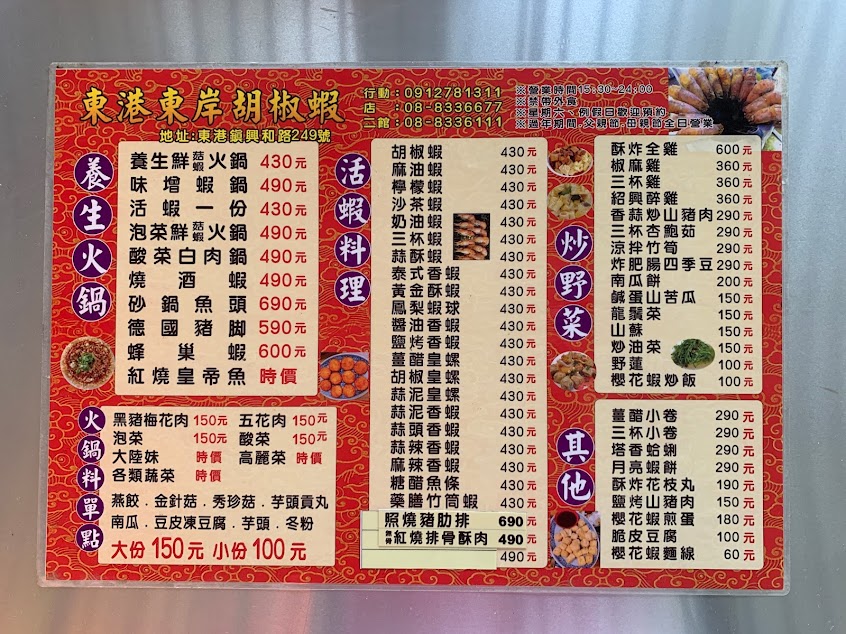 東港東岸胡椒蝦
地址:東港鎮興和路249號
行動:0912781311
店 :08-8336677
二館:08-8336111
※營業時間15:30-24:00
※禁帶外食
※星期六、例假日歡迎預約
※過年期間.父親節.母親節全日營業
養生火鍋
養生鮮菇蝦火鍋 430元
味增蝦鍋 490元
活蝦一份 430元
泡菜鮮菇蝦火鍋 490元
酸菜白肉鍋 490元
燒酒蝦 490元
砂鍋魚頭 690元
德國豬脚 590元
蜂巢蝦 600元
紅燒皇帝魚 時價
火鍋料單點
黑豬梅花肉 150元 五花肉 150元
泡菜 150元 酸菜 150元
大陸妹 時價 高麗菜 時價
各類蔬菜 時價
燕餃.金針菇.秀珍菇.芋頭貢丸
南瓜.豆皮凍豆腐.芋頭.冬粉
大份150元 小份100元
活蝦料理
胡椒蝦 430元
麻油蝦 430元
檸檬蝦 430元
沙茶蝦 430元
奶油蝦 430元
三杯蝦 430元
蒜酥蝦 430元
泰式香蝦 430元
黃金酥蝦 430元
鳳梨蝦球 430元
醬油香蝦 430元
鹽烤香蝦 430元
薑醋皇螺 430元
胡椒皇螺 430元
蒜泥皇螺 430元
蒜泥香蝦 430元
蒜頭香蝦 430元
蒜辣香蝦 430元
麻辣香蝦 430元
糖醋魚條 430元
藥膳竹筒蝦 430元
照燒豬肋排 690元
無骨紅燒排骨酥肉 490元
490元
炒野菜
酥炸全雞 600元
椒麻雞 360元
三杯雞 360元
紹興醉雞 360元
香蒜炒山豬肉 290元
三杯杏鮑菇 290元
涼拌竹筍 290元
炸肥腸四季豆 290元
南瓜餅 200元
鹹蛋山苦瓜 150元
龍鬚菜 150元
山蘇 150元
炒油菜 150元
野蓮 100元
櫻花蝦炒飯 100元
其他
薑醋小卷 290元
三杯小卷 290元
塔香蛤蜊 290元
月亮蝦餅 290元
酥炸花枝丸 190元
鹽烤山豬肉 150元
櫻花蝦煎蛋 180元
脆皮豆腐 100元
櫻花蝦麵線 60元